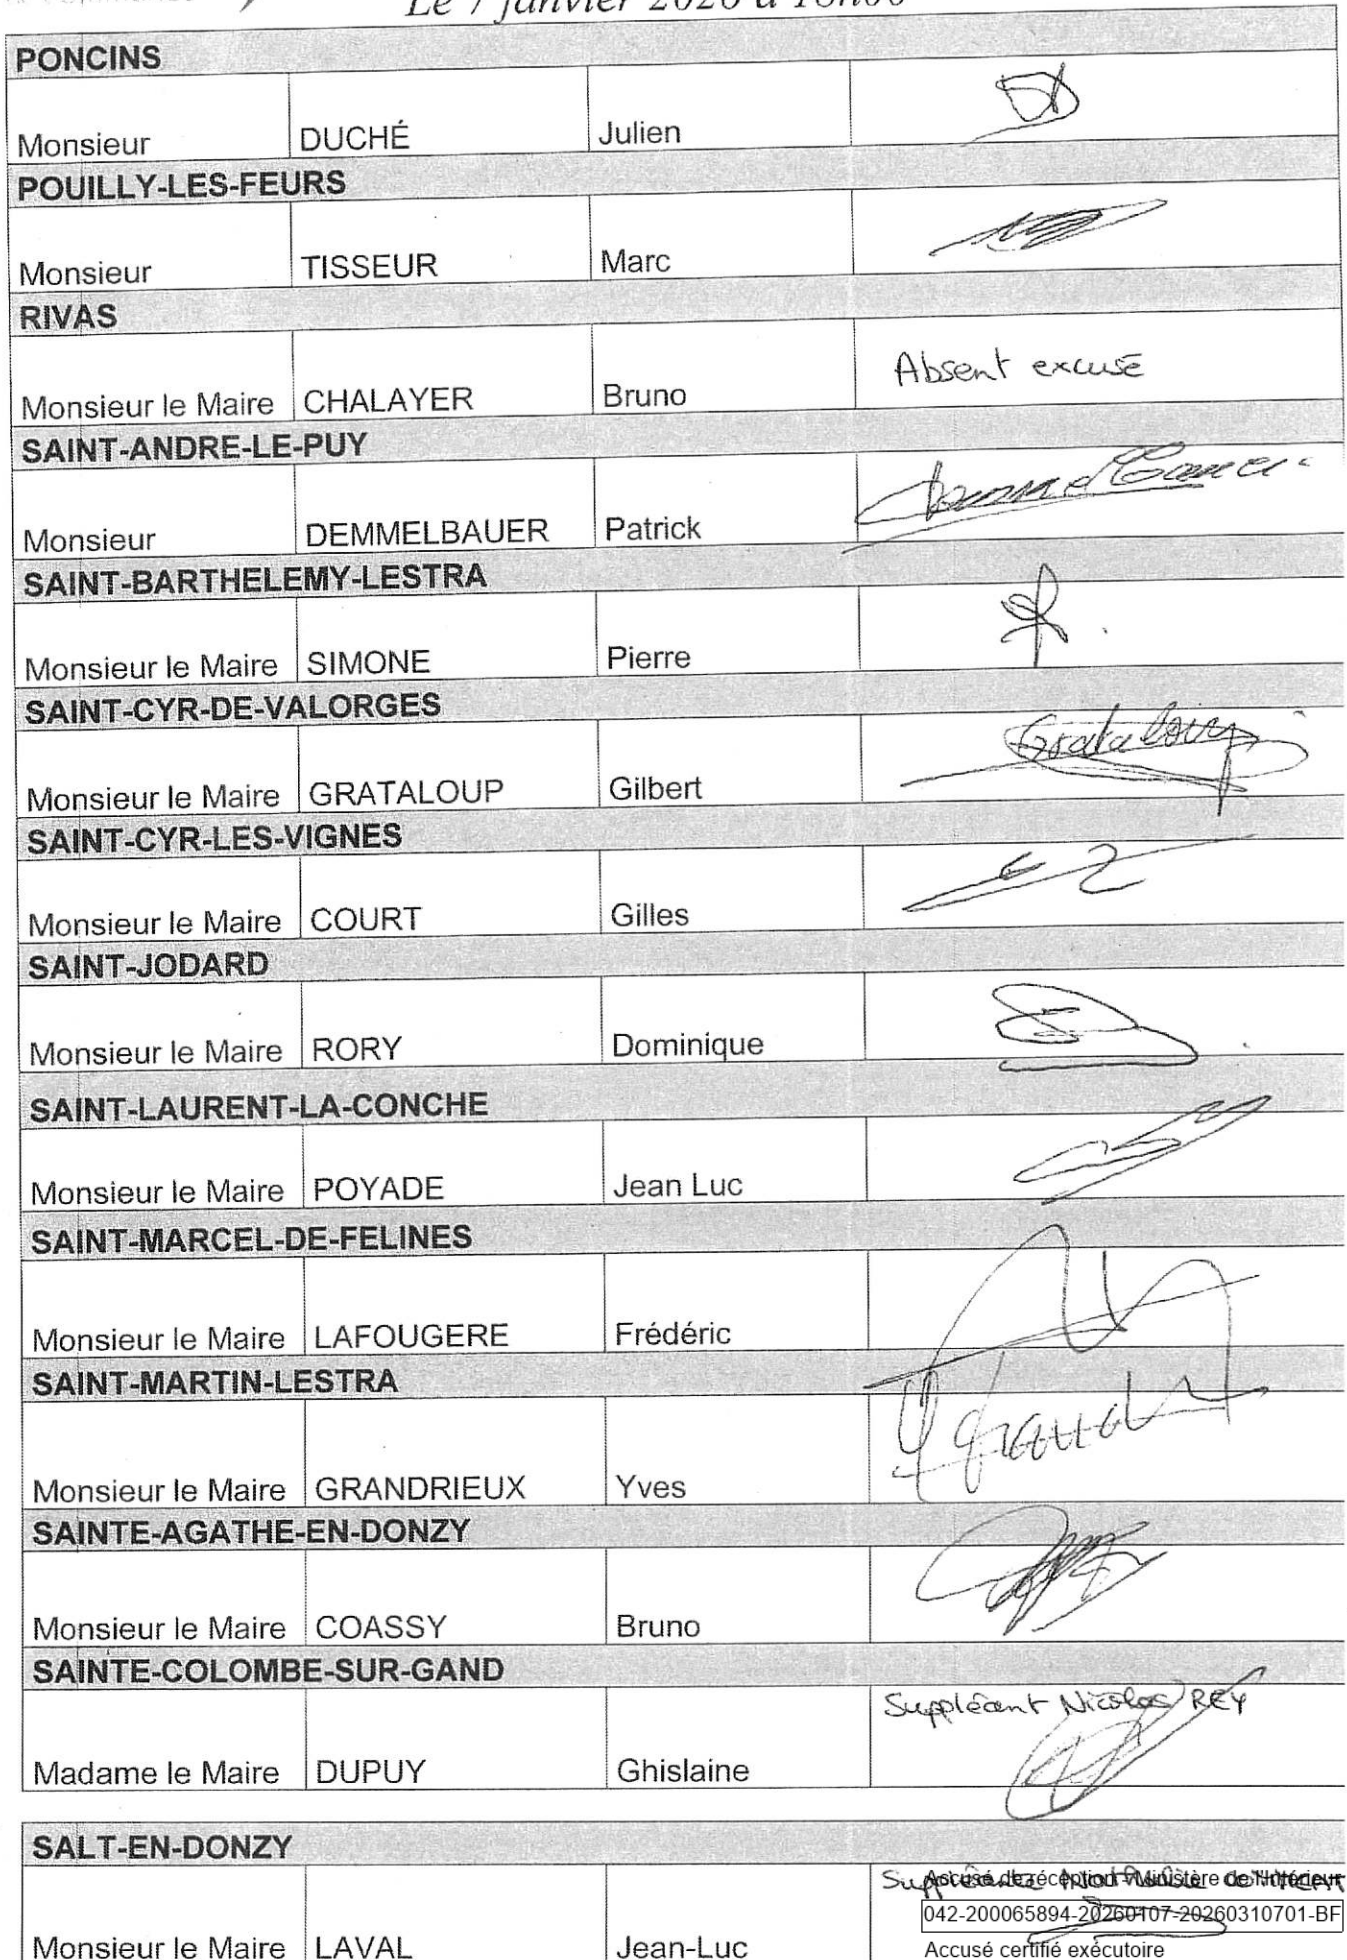 Le 7 janvier 2026 à 18h00
PONCINS
Monsieur DUCHÉ Julien
POUILLY-LES-FEURS
Monsieur TISSEUR Marc
RIVAS
Monsieur le Maire CHALAYER Bruno Absent excusé
SAINT-ANDRE-LE-PUY
Monsieur DEMMELBAUER Patrick
SAINT-BARTHELEMY-LESTRA
Monsieur le Maire SIMONE Pierre
SAINT-CYR-DE-VALORGES
Monsieur le Maire GRATALOUP Gilbert Grataloup
SAINT-CYR-LES-VIGNES
Monsieur le Maire COURT Gilles
SAINT-JODARD
Monsieur le Maire RORY Dominique
SAINT-LAURENT-LA-CONCHE
Monsieur le Maire POYADE Jean Luc
SAINT-MARCEL-DE-FELINES
Monsieur le Maire LAFOUGERE Frédéric
SAINT-MARTIN-LESTRA
Monsieur le Maire GRANDRIEUX Yves
SAINTE-AGATHE-EN-DONZY
Monsieur le Maire COASSY Bruno
SAINTE-COLOMBE-SUR-GAND
Suppléant Nicolas REY
Madame le Maire DUPUY Ghislaine
SALT-EN-DONZY
Suppléante
Accusé de réception - Ministère de l'Intérieur
042-200065894-20260107-20260310701-BF
Monsieur le Maire LAVAL Jean-Luc
Accusé certifié exécutoire